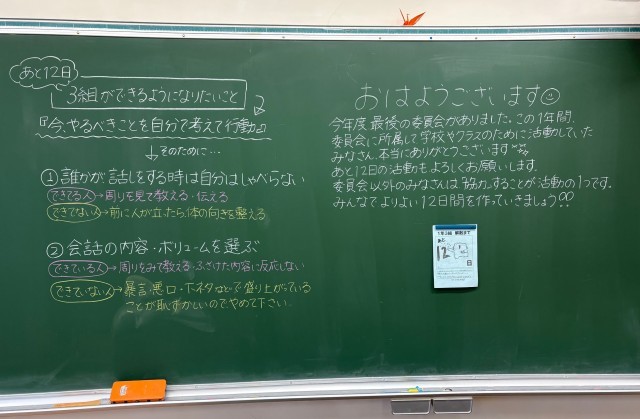 あと12日
3組ができるようになりたいこと
『今、やるべきことを自分で考えて行動』
↓そのために…
①誰かが話しをする時は自分はしゃべらない
できてる人→周りを見て教える・伝える
できてない人→前に人が立ったら、体の向きを整える
②会話の内容・ボリュームを選ぶ
できている人→周りをみて教える・ふざけた内容に反応しない
できていない人→暴言、悪口・下ネタなどで盛り上がっている
ことが恥ずかしいのでやめて下さい。
おはようございます
今年度最後の委員会がありました。この1年間、
委員会に所属して学校やクラスのために活動していた
みなさん、本当にありがとうございます
あと12日の活動もよろしくお願いします。
委員会以外のみなさんは"協力"することが活動の1つです。
みんなでよりよい12日間を作っていきましょう!!
1年3組 解散まで
あと
12
日